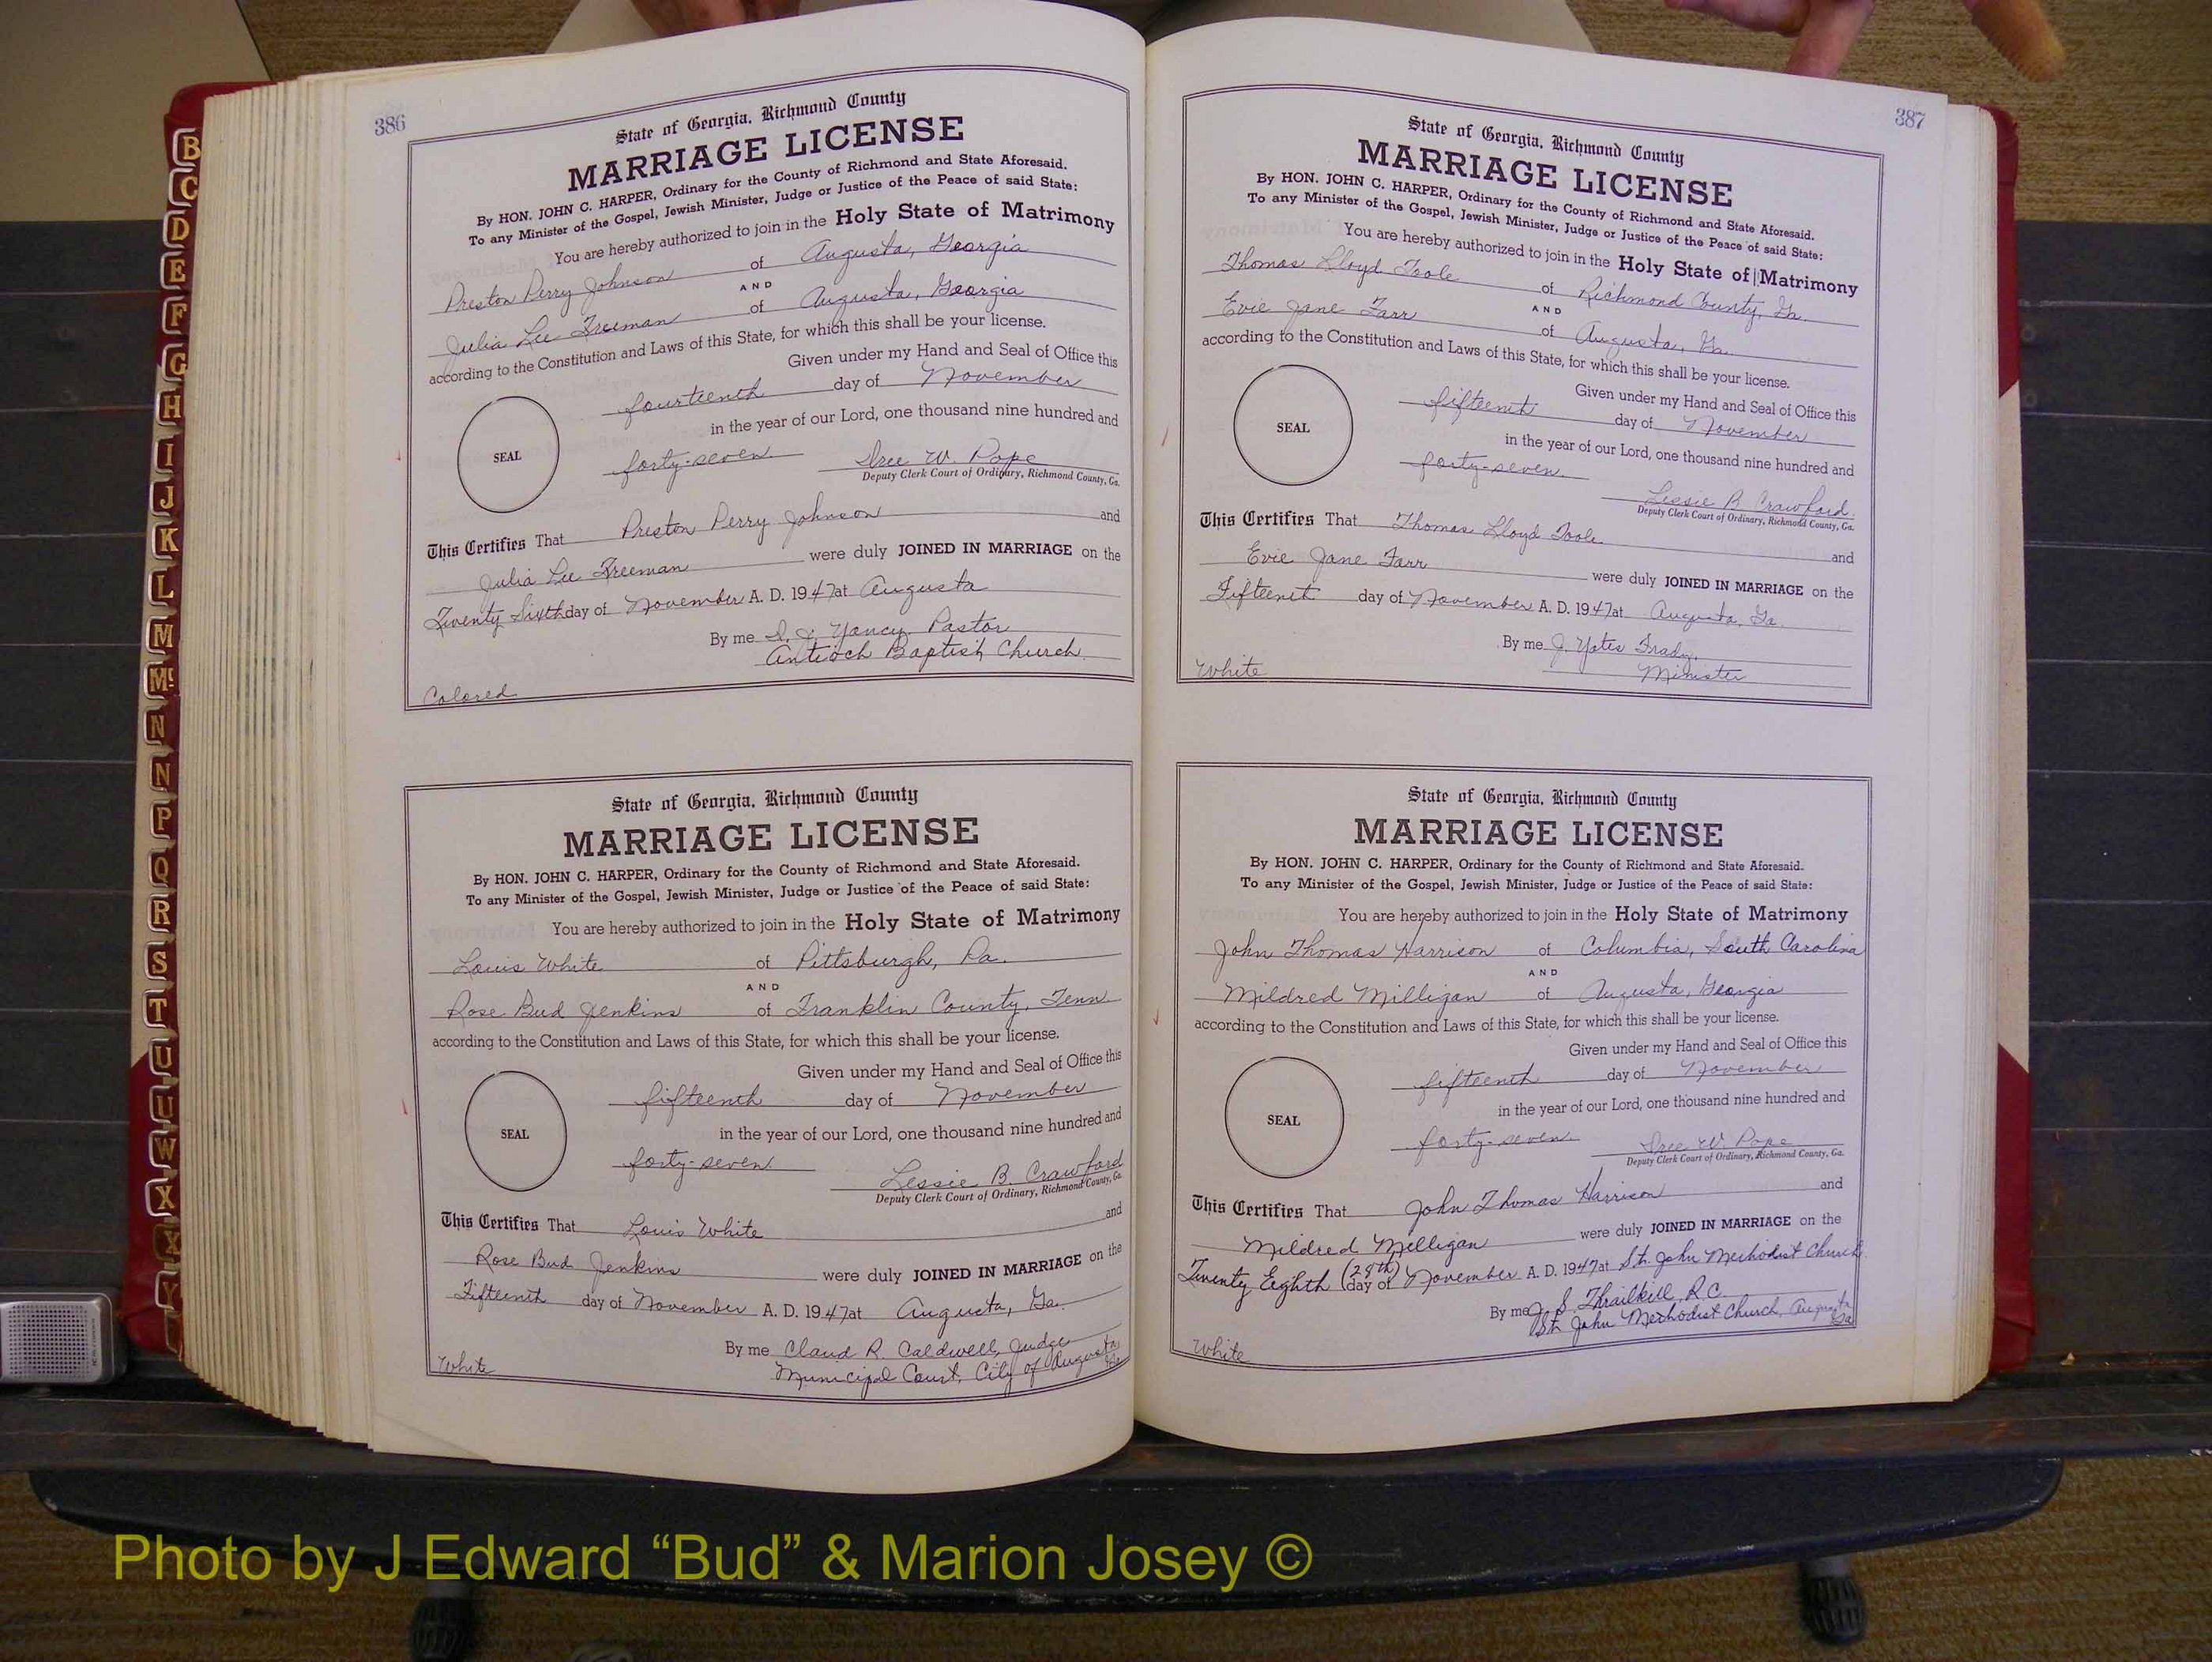 386
State of Georgia, Richmond County
MARRIAGE LICENSE
By HON. JOHN C. HARPER, Ordinary for the County of Richmond and State Aforesaid.
To any Minister of the Gospel, Jewish Minister, Judge or Justice of the Peace of said State:
You are hereby authorized to join in the Holy State of Matrimony
Preston Perry Johnson of Augusta, Georgia
AND
Julia Lee Freeman of Augusta, Georgia
according to the Constitution and Laws of this State, for which this shall be your license.
Given under my Hand and Seal of Office this
fourteenth day of November
in the year of our Lord, one thousand nine hundred and
SEAL
forty-seven W. Pope
Deputy Clerk Court of Ordinary, Richmond County, Ga.
This Certifies That Preston Perry Johnson and
Julia Lee Freeman were duly JOINED IN MARRIAGE on the
Twenty Sixth day of November A. D. 1947 at Augusta
By me Yancy, Pastor
Antioch Baptist Church
Colored
State of Georgia, Richmond County
MARRIAGE LICENSE
By HON. JOHN C. HARPER, Ordinary for the County of Richmond and State Aforesaid.
To any Minister of the Gospel, Jewish Minister, Judge or Justice of the Peace of said State:
You are hereby authorized to join in the Holy State of Matrimony
Louis White of Pittsburgh, Pa.
AND
Rose Bud Jenkins of Franklin County, Tenn
according to the Constitution and Laws of this State, for which this shall be your license.
Given under my Hand and Seal of Office this
fifteenth day of November
in the year of our Lord, one thousand nine hundred and
SEAL
forty-seven Lessie B. Crawford
Deputy Clerk Court of Ordinary, Richmond County, Ga.
This Certifies That Louis White and
Rose Bud Jenkins were duly JOINED IN MARRIAGE on the
Fifteenth day of November A. D. 1947 at Augusta, Ga.
By me Claud R. Caldwell, Judge
Municipal Court, City of Augusta Ga
White
387
State of Georgia, Richmond County
MARRIAGE LICENSE
By HON. JOHN C. HARPER, Ordinary for the County of Richmond and State Aforesaid.
To any Minister of the Gospel, Jewish Minister, Judge or Justice of the Peace of said State:
You are hereby authorized to join in the Holy State of Matrimony
Thomas Lloyd Toole of Richmond County, Ga.
AND
Evie Jane Farr of Augusta, Ga.
according to the Constitution and Laws of this State, for which this shall be your license.
Given under my Hand and Seal of Office this
fifteenth day of November
in the year of our Lord, one thousand nine hundred and
SEAL
forty-seven Lessie B. Crawford
Deputy Clerk Court of Ordinary, Richmond County, Ga.
This Certifies That Thomas Lloyd Toole and
Evie Jane Farr were duly JOINED IN MARRIAGE on the
Fifteenth day of November A. D. 1947 at Augusta, Ga.
By me J. Yates
Minister
White
State of Georgia, Richmond County
MARRIAGE LICENSE
By HON. JOHN C. HARPER, Ordinary for the County of Richmond and State Aforesaid.
To any Minister of the Gospel, Jewish Minister, Judge or Justice of the Peace of said State:
You are hereby authorized to join in the Holy State of Matrimony
John Thomas Harrison of Columbia, South Carolina
AND
Mildred Milligan of Augusta, Georgia
according to the Constitution and Laws of this State, for which this shall be your license.
Given under my Hand and Seal of Office this
fifteenth day of November
in the year of our Lord, one thousand nine hundred and
SEAL
forty-seven W. Pope
Deputy Clerk Court of Ordinary, Richmond County, Ga.
This Certifies That John Thomas Harrison and
Mildred Milligan were duly JOINED IN MARRIAGE on the
Twenty Eighth (28th) day of November A. D. 1947 at St. John Methodist Church
By me J. S. Thrailkill, P.C.
St. John Methodist Church, Augusta Ga
White
B
C
D
E
F
G
H
I
J
K
L
M
Mc
N
N
P
Q
R
S
T
U
U
W
X
X
Y
Photo by J Edward “Bud” & Marion Josey ©